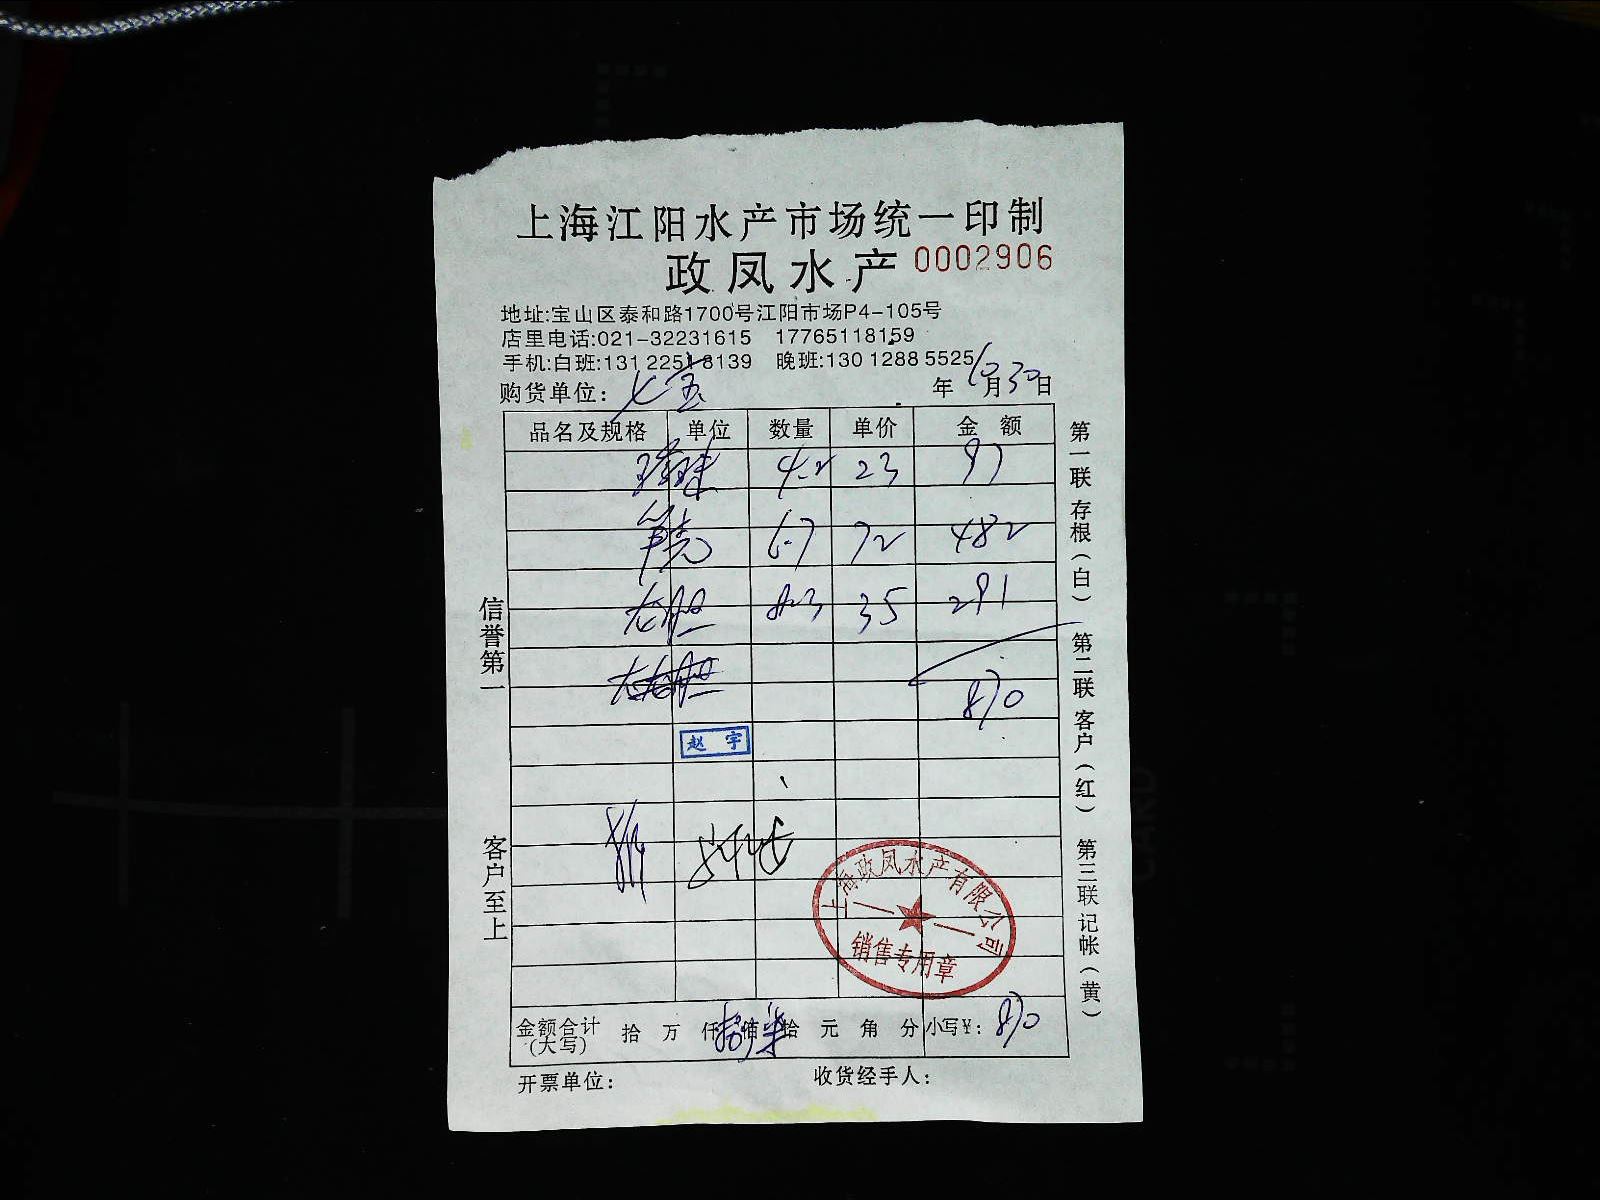 上海江阳水产市场统一印制
政凤水产 0002906
地址:宝山区泰和路1700号江阳市场P4-105号
店里电话:021-32231615 17765118159
手机:白班:131 2251 8139 晚班:130 1288 5525
购货单位: 七宝 年 10月30日
品名及规格 单位 数量 单价 金额
4.2 23 97
笋壳 6.7 72 482
龙胆 8.3 35 291
龙胆
870
赵宇
上海政凤水产有限公司
销售专用章
金额合计(大写) 拾 万 仟 捌佰 柒拾 元 角 分 小写¥: 870
开票单位: 收货经手人:
信誉第一
客户至上
第一联 存根(白) 第二联 客户(红) 第三联 记帐(黄)